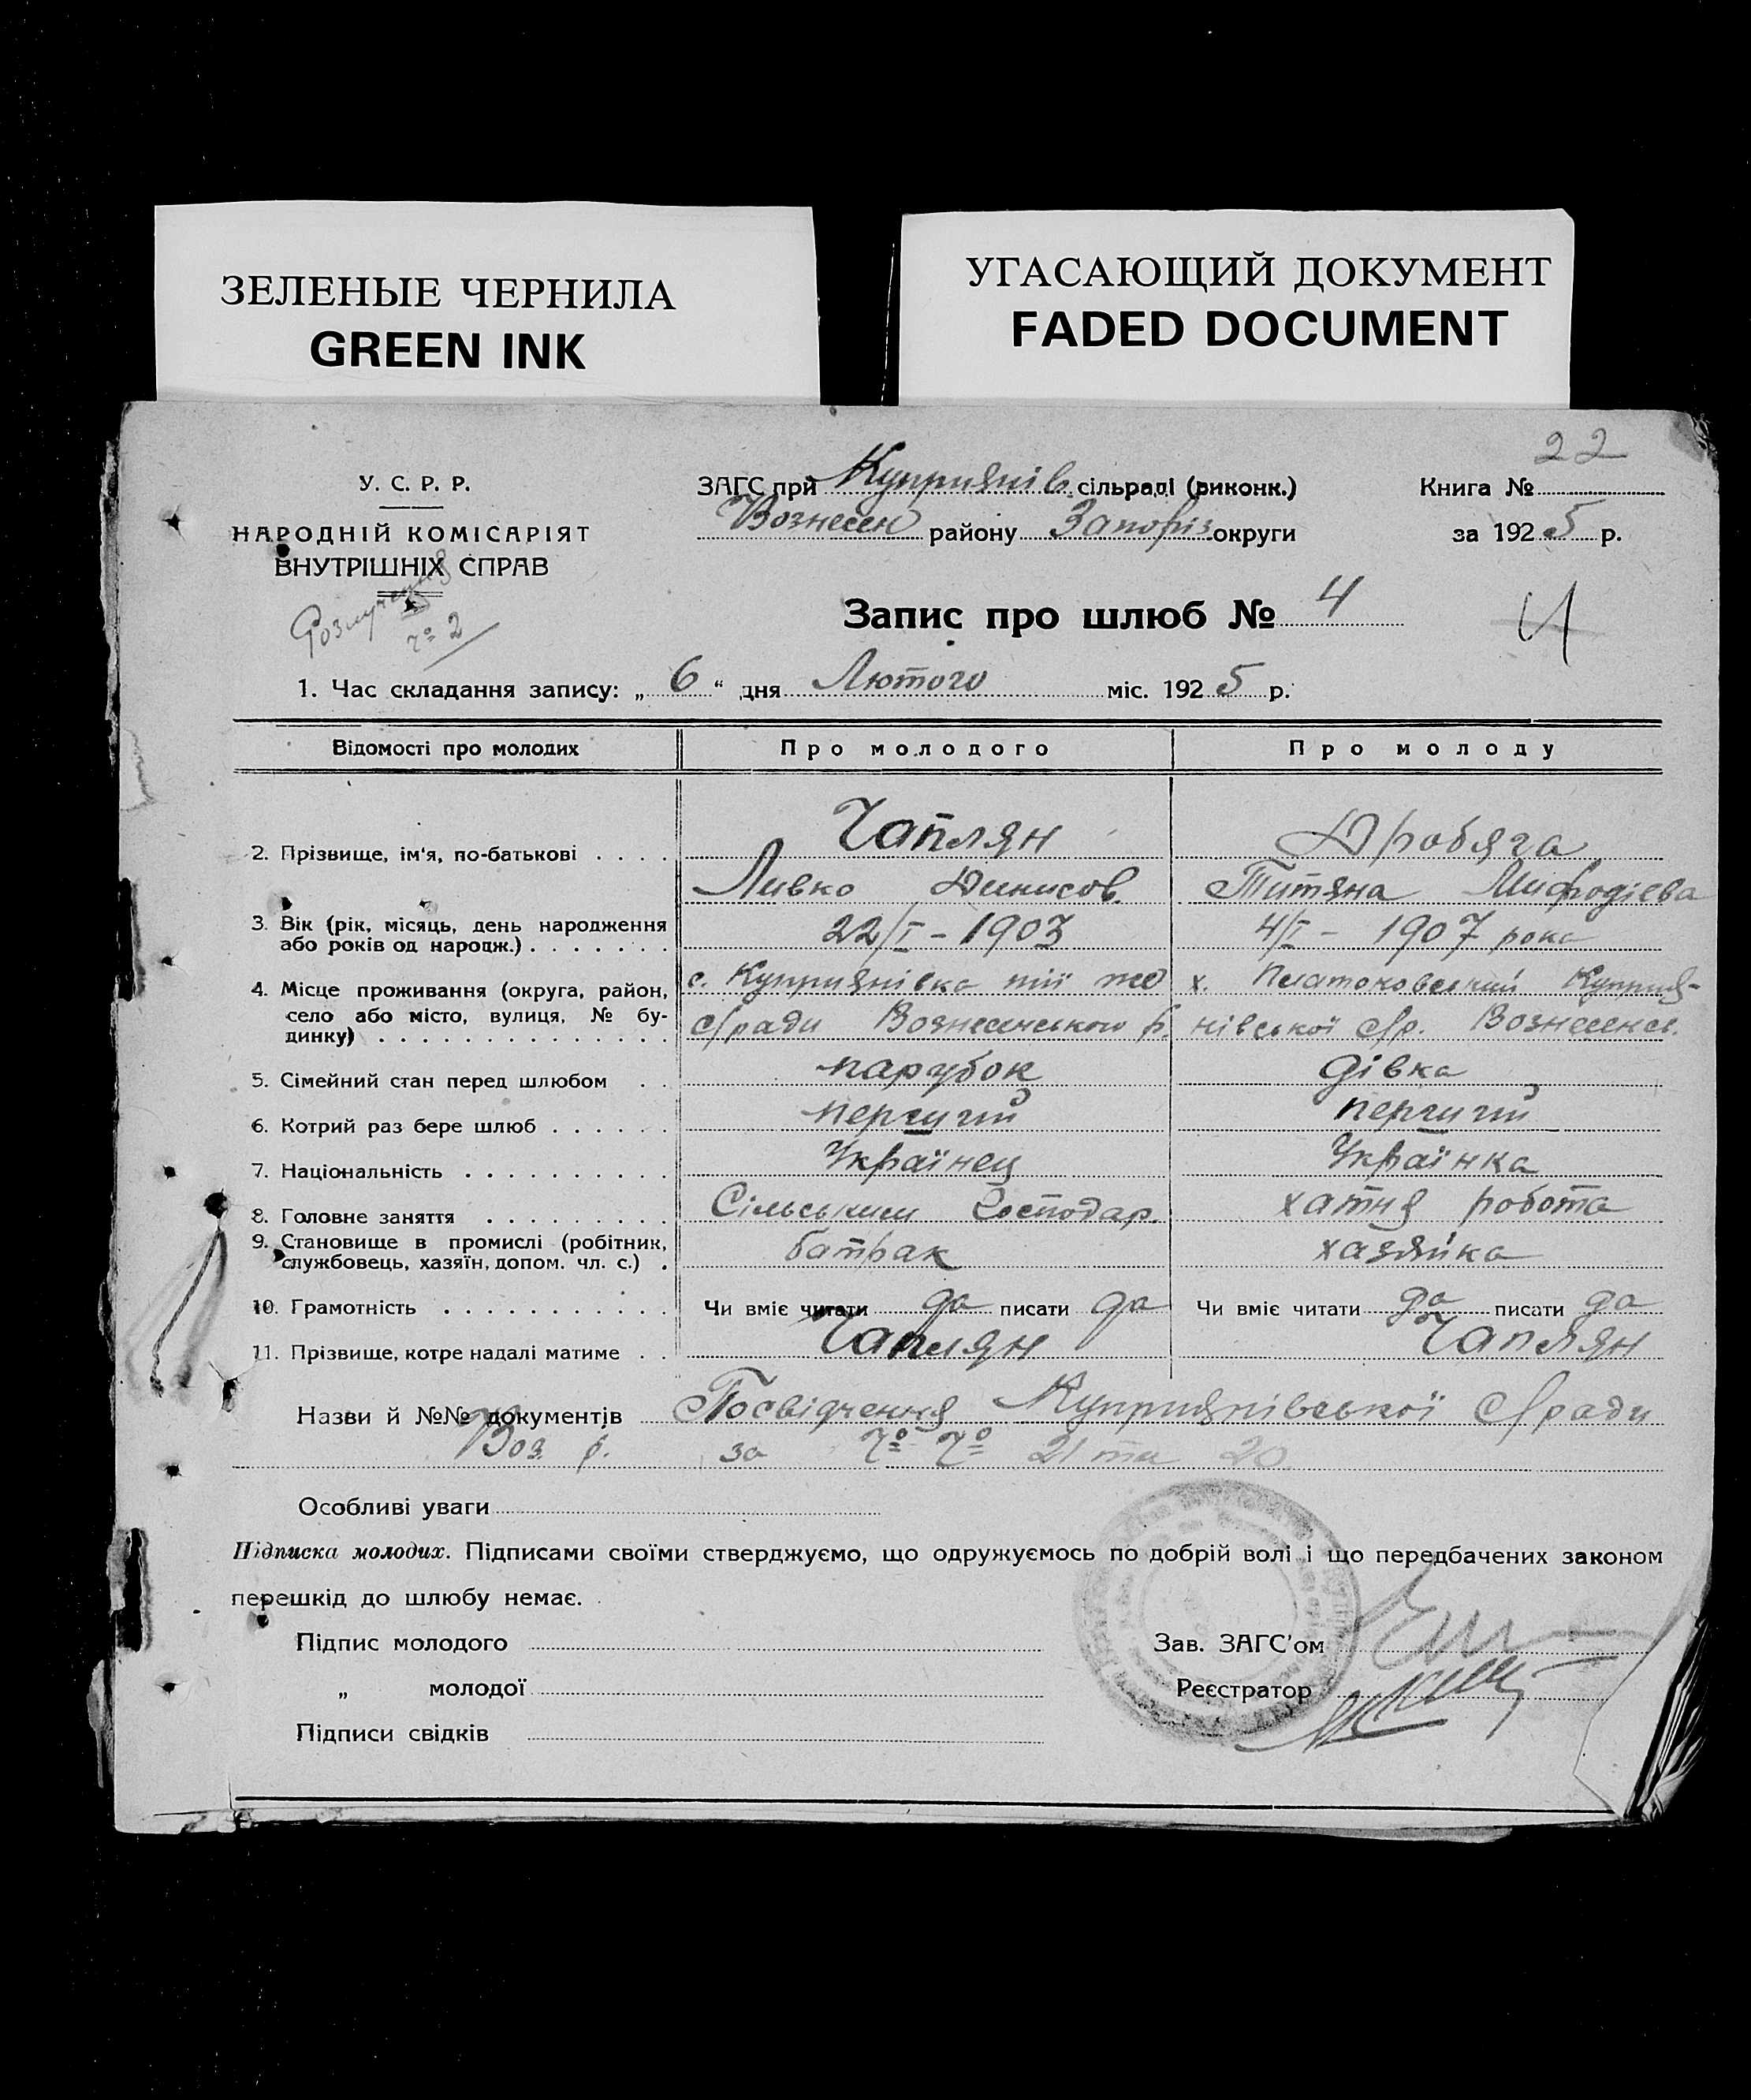 ЗЕЛЕНЫЕ ЧЕРНИЛА
GREEN INK
УГАСАЮЩИЙ ДОКУМЕНТ
FADED DOCUMENT
22
У. С. Р. Р.
НАРОДНІЙ КОМІСАРІЯТ
ВНУТРІШНІХ СПРАВ
№ 2
ЗАГС при Куприянів. сільраді (виконк.)
Вознесен району Запоріз округи
Книга №
за 1925 р.
Запис про шлюб № 4
4
1. Час складання запису: „ 6 “ дня Лютого міс. 1925 р.
Відомості про молодих Про молодого Про молоду
2. Прізвище, ім'я, по-батькові . . . . Чаплян Дробяга
Ливко Динисов. Титяна Мифодієва
3. Вік (рік, місяць, день народження
або років од народж.) . . . . . . . 22/I – 1903 4/I – 1907 рока
4. Місце проживання (округа, район,
село або місто, вулиця, № бу-
динку) . . . . . . . . . . . . . .
с. Куприянівка тії же
с/ради Вознесенського р.
х. Платоковський Куприя-
нівської с/р. Вознесенс.
5. Сімейний стан перед шлюбом . . парубок дівка
6. Котрий раз бере шлюб . . . . . . перший перший
7. Національність . . . . . . . . . . Українец Українка
8. Головне заняття . . . . . . . . . Сільським Господар. хатня робота
9. Становище в промислі (робітник,
службовець, хазяїн, допом. чл. с.) . батрак хазяйка
10. Грамотність . . . . . . . . . . . Чи вміє читати да писати да Чи вміє читати да писати да
11. Прізвище, котре надалі матиме . . Чаплян Чаплян
Назви й №№ документів Посвідчення Куприянівської с/ради
Воз. р. за № № 21 та 20
Особливі уваги
Підписка молодих. Підписами своїми стверджуємо, що одружуємось по добрій волі і що передбачених законом
перешкід до шлюбу немає.
Підпис молодого
„ молодої
Підписи свідків
Зав. ЗАГС'ом
Реєстратор